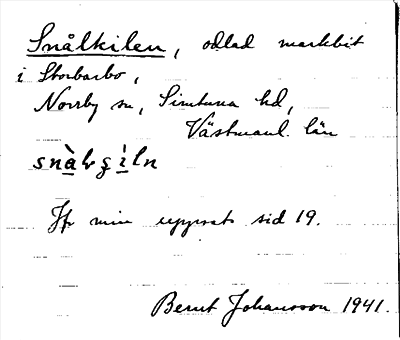 Snålkilen, odlad markbit
i Storbarbo,
Norrby sn, Simtuna hd,
Västmanl. län
snàlçìln
Jfr min uppsats sid 19.
Bernt Johansson 1941.